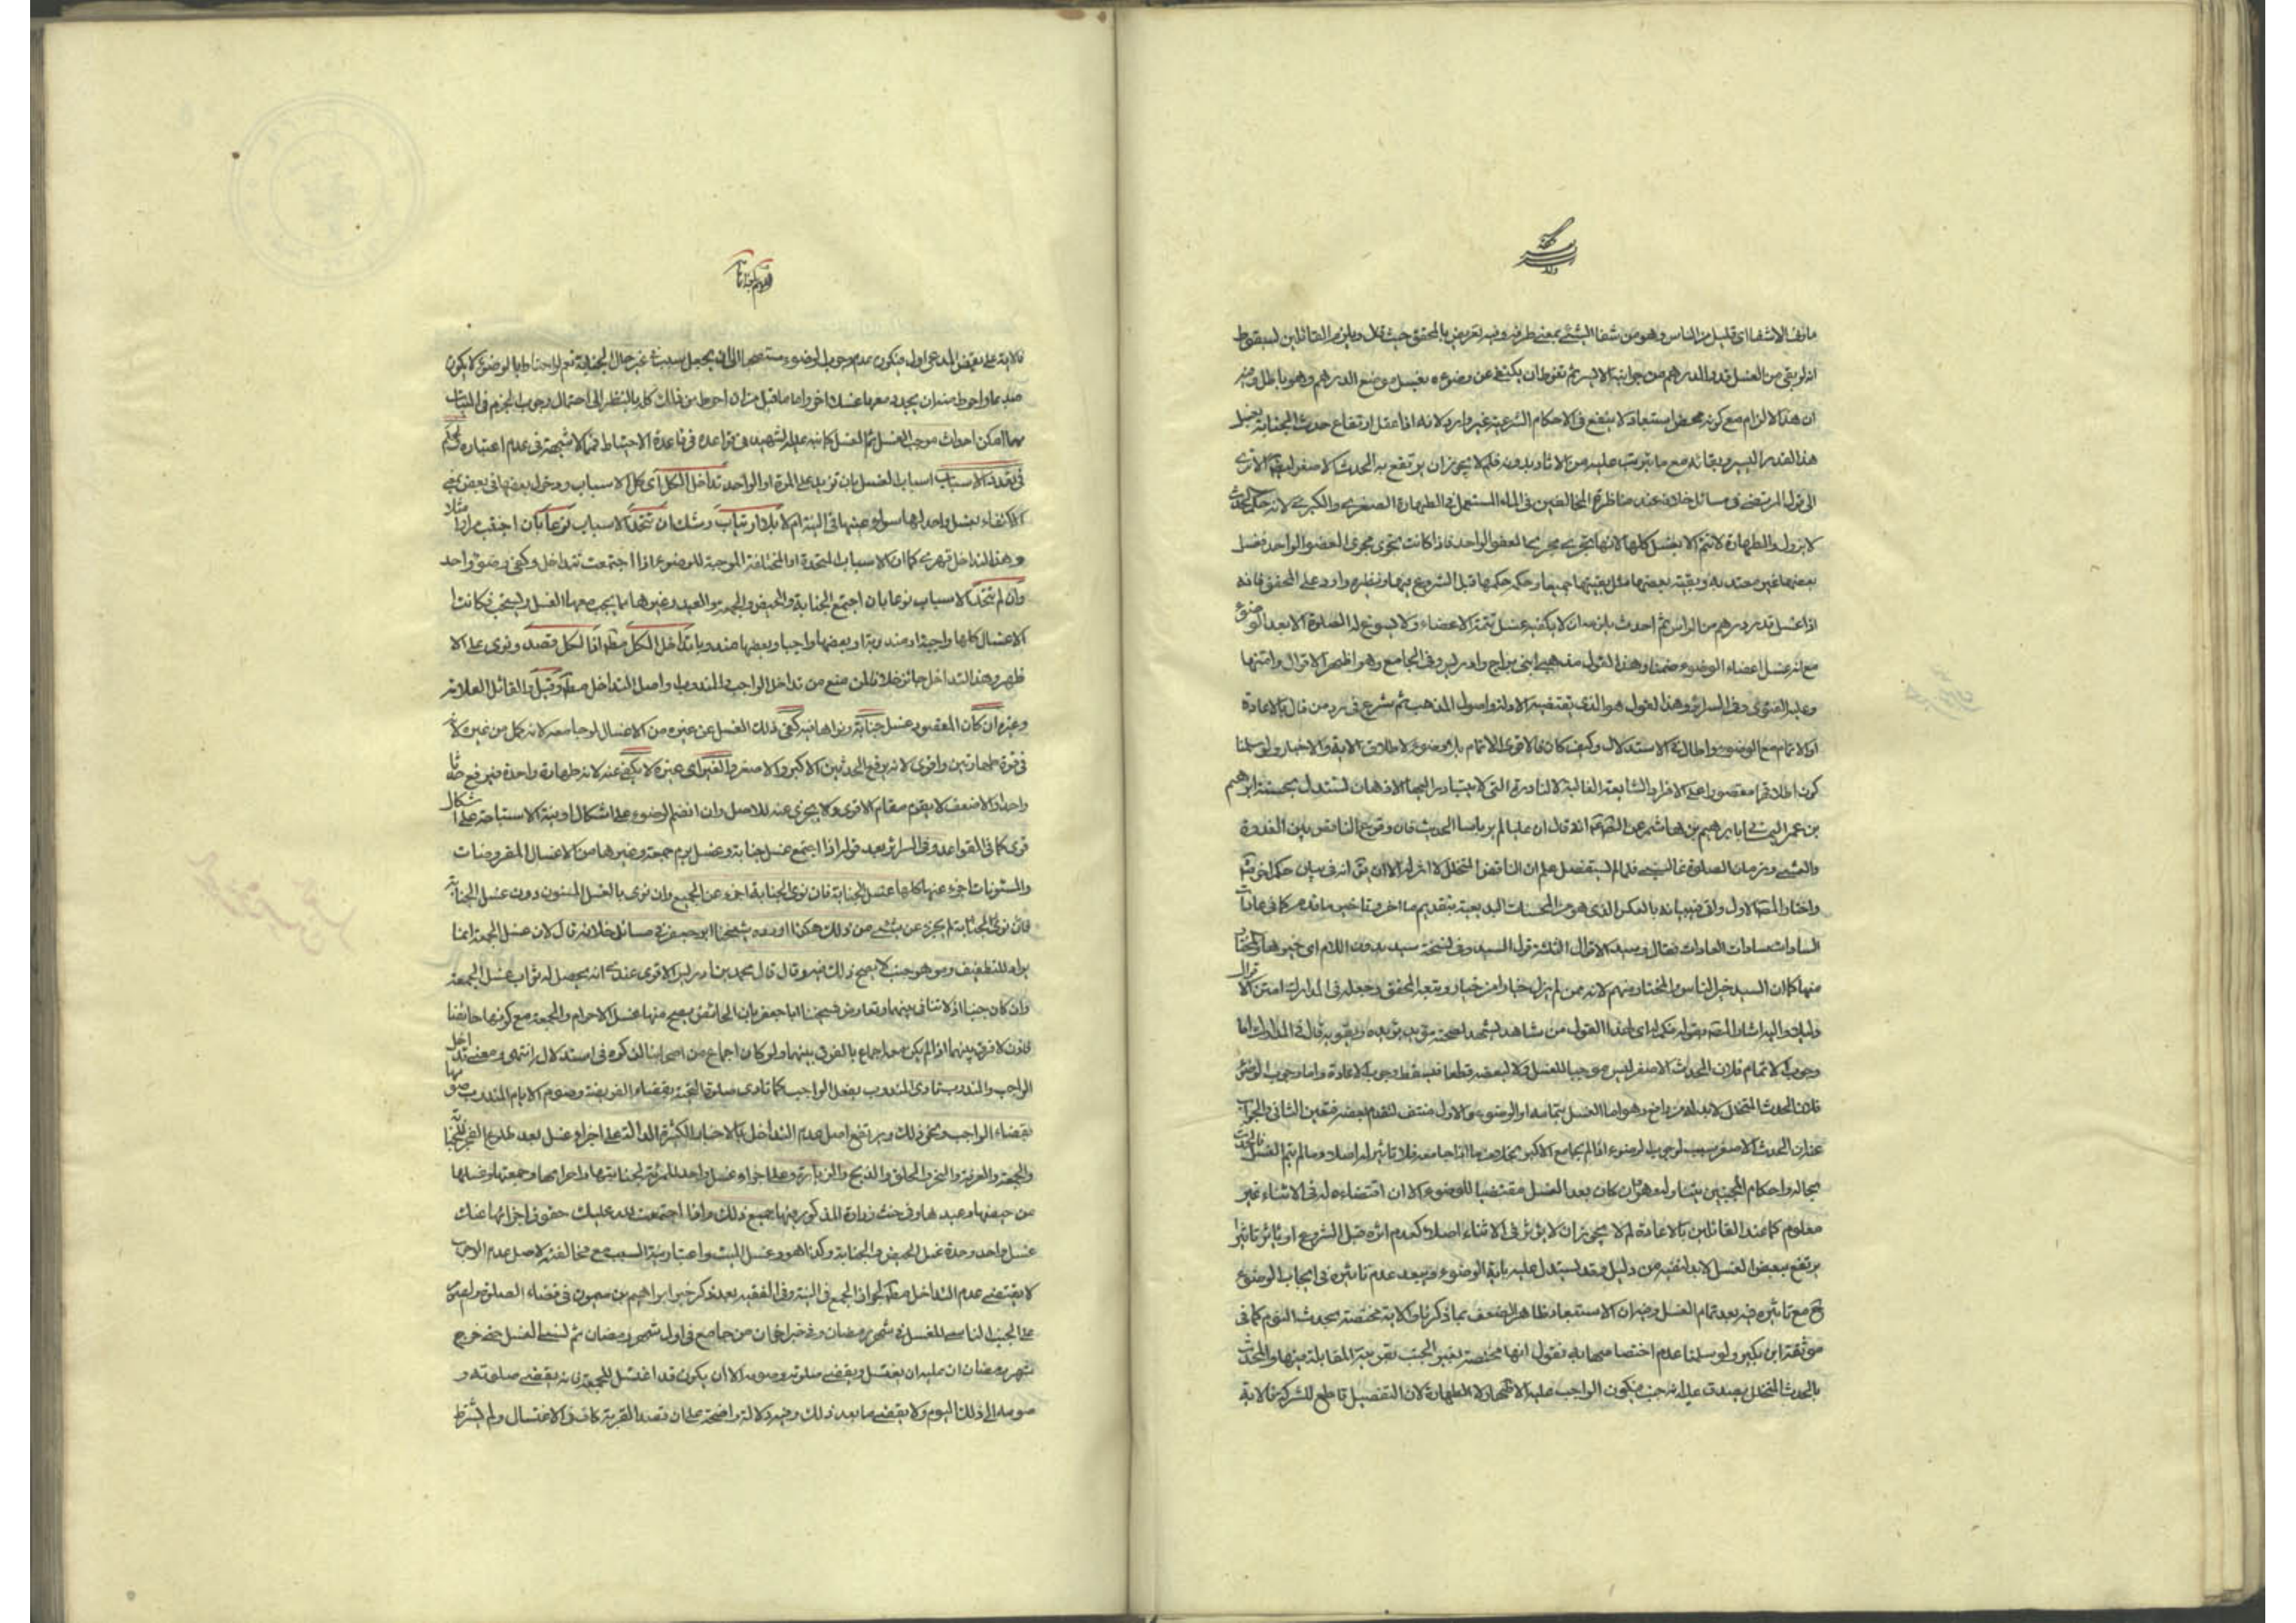 مارفه الا شفا اى قليل من الناس وهو من شفا الشئ بمعنى طرفه وفيه تعريض بالمحقق حيث قال ويلزم القائلين لسقوط
انه لو بقى من الغسل قدر الدرهم من جوانبه الايسر ثم تغوط ان يكتفى عن وضوءه بغسل موضع الدرهم وهو باطل وفيه
ان هذا الالزام مع كونه محض استبعاد لا ينفع فى الاحكام الشرعية غير وارد لانه اذا عقل ارتفاع حدث الجنابة بغسل
هذا القدر اليسير وبقائه مع ما يترتب عليه من الاثار بدونه فلم لا يجوز ان يرتفع به الحدث الاصغر ايضا الا ترى
الى قول المرتضى فى مسائل خلافه عند مناظرة المخالفين فى الماء المستعمل فى الطهارة الصغرى والكبرى لانه حكم الحدث
لا يزول والطهارة لا تتم الا بغسل كلها لانها تجرى مجرى العضو الواحد فاذا كانت تجرى مجرى العضو الواحد فغسل
بعضها غير معتد به وبقية بعضها مثل بقيتها جميعا وحكمه حكمها قبل الشروع فيها ونظيره وارد على المحقق فانه
اذا غسل قدر درهم من الراس ثم احدث يلزمه ان لا يكفيه غسل تتمة الاعضاء ولا يسوغ له الصلوة الا بعد الوضوء
مع انه غسل اعضاء الوضوء ضمنا وهذا القول مذهب ابنى براج وادريس وفى الجامع وهو اظهر الاقوال وامتنها
وعليه الفتوى وفى السرائر وهذا القول هو الذى يقتضيه الادلة واصول المذهب ثم شرع فى رد من قال بالاعادة
او الاتمام مع الوضوء واطال فى الاستدلال وكيف كان فالاقوى الاتمام بلا وضوء لاطلاق الاية والاخبار ولو سلمنا
كون اطلاقها مقصورا على الافراد الشايعة الغالبة لا النادرة التى لا يتبادر اليها الاذهان نستدل بحسنة ابرهيم
بن عمر اليمانى ان عليا لم ير باسا الحديث فان وقوع الناقض بين الغدوة
والعشى وزمان الصلوة غالب فلما لم يستفصل علم ان الناقض المتخلل لا اثر له الا ان يق انه فى بيان حكم اخر
واختار المصنف الاول واتى فى بيانه بالعكس الذى هو من المحسنات البديعية بتقديم ما اخر وتاخير ما قدم كما فى عادات
السادات سادات العادات فقال وسيد الاقوال الثلثة قول السيد وفى نسخة سيد بدون اللام اى خيرها والمختار
منها كما ان السيد خير الناس والمختار منهم لانه من لم يزل خيارا من خيار وتبعه المحقق وجعله فى المدارك امتن الاقوال
دليلا واليه اشار المصنف بقوله فكم له اى لهذا القول من شاهد يشهد لصحته مؤيد يؤيده ويقويه قال فى المدارك اما
وجوب الاتمام فلان الحدث الاصغر ليس موجبا للغسل ولا لبعضه قطعا فيسقط وجوب الاعادة واما وجوب الوضوء
فلان الحدث المتخلل لا بد له من رافع وهو اما الغسل بتمامه او الوضوء والاول منتف لتقدم بعضه فتعين الثانى والجواب
عنه ان الحدث الاصغر سبب لوجوب الوضوء اذا لم يجامع الاكبر بخلاف ما اذا جامعه فلا تاثير له اصلا وما لم يتم الغسل فالحدث
بحاله واحكام المجنبين بتناوله وهو ان كان بعد الغسل مقتضيا للوضوء الا ان اقتضاءه له فى الاثناء غير
معلوم كما عند القائلين بالاعادة لم لا يجوز ان لا يؤثر فى الاثناء اصلا كعدم اثره قبل الشروع او يؤثر تاثيرا
يرتفع ببعض الغسل لا بد لنفيه من دليل وقد يستدل عليه باية الوضوء ويبعد عدم تاثيره فى ايجاب الوضوء
ح مع تاثيره فيه بعد تمام الغسل وفيه ان الاستبعاد ظاهر الضعف بما ذكرنا والاية مختصة بحدث النوم كما فى
موثقة ابن بكير ولو سلمنا عدم اختصاصها به نقول انها مختصة بغير الجنب بقرينة المقابلة فيها والمحدث
بالحدث المتخلل يصدق عليه انه جنب فيكون الواجب عليه الاطهار لا الطهارة لان التفصيل قاطع للشركة فالاية
فالاية على نقيض المدعى اول فيكون عدم وجوب الوضوء مستصحبا الى ان يحصل سبب فى غير حال الجنابة نعم لو احتاط بالوضوء لا يكون
مبدعا واحوط منه ان يجدد معها غسلا اخر واما ما قيل من ان احوط من ذلك كله بالنظر الى احتمال وجوب الجزم فى النيات
مهما امكن احداث موجب الغسل ثم الغسل كما نبه عليه الشهيد فى قواعده فى قاعدة الاحتياط فمما لا شبهة فى عدم اعتباره
فى تعدد الاسباب اسباب الغسل بان تزيد على المرة او الواحد تداخل الكل اى كل الاسباب ودخول بعضها فى بعض بمعنى
الاكتفاء بغسل واحد لها سواء عينها فى النية ام لا بلا ارتياب وشك ان تتحد الاسباب نوعا بان اجنب مرارا مثلا
وهذا التداخل قهرى كما ان الاسباب المتحدة او المختلفة الموجبة للوضوء اذا اجتمعت تتداخل وكفى وضوء واحد
وان لم تتحد الاسباب نوعا بان اجتمع الجنابة والحيض والجمعة والعيد وغيرها مما يجب معها الغسل او يستحب فكانت
الاغسال كلها واجبة او مندوبة او بعضها واجبا وبعضها مندوبا تداخل الكل مطلقا اذا الكل قصد ونوى على الا
ظهر وهذا التداخل جائز خلافا لمن منع من تداخل الواجب والمندوب او اصل التداخل مطلقا وقيل والقائل العلامة
وغيره ان كان المقصود غسل جنابة ونواها فيه كفى ذلك الغسل عن غيره من الاغسال لو جامعه لانه اكمل من غيره لانه
فى قوة طهارتين واقوى لانه يرفع الحدثين الاكبر والاصغر والغير اى غيره لا يكفى عنه لانه طهارة واحدة فيرفع حدثا
واحدا والاضعف لا يقوم مقام الاقوى ولا يجزى عنه للاصل وان انضم الوضوء على اشكال او نية الاستباحة على اشكال
قوى كما فى القواعد وفى السرائر بعد قوله اذا اجتمع غسل جنابة وغسل يوم جمعة وغيرها من الاغسال المفروضات
والمسنونات اجزء عنها كلها غسل الجنابة فان نوى الجنابة اجزء عن الجميع وان نوى بالغسل المسنون دون غسل الجنابة
فان نوى الجنابة لم يجزء عن شئ من ذلك هكذا اورده شيخنا ابو جعفر فى مسائل خلافه قال لان غسل الجمعة انما
يراد للتنظيف ومن هو جنب لا يصح ذلك فيه وقال قال محمد بن ادريس الاقوى عندى انه يحصل له ثواب غسل الجمعة
وان كان جنبا اذ لا تنافى بينهما وتعارض شيخنا ابا جعفر بان الحائض يصح منها غسل الاحرام والجمعة مع كونها حائضا
فاذن لا فرق بينهما اذا لم يكن معه اجماع بالفرق بينهما ولو كان اجماع من اصحابنا لذكره فى استدلاله انتهى ومعنى تداخل
الواجب والمندوب تادى المندوب بفعل الواجب كما تادى صلوة التحية بقضاء الفريضة وصوم الايام المندوب صومها
بقضاء الواجب ونحو ذلك ويرتفع اصل عدم التداخل بالاخبار الكثيرة الدالة على اجزاء غسل بعد طلوع الفجر للجنابة
والجمعة والعرفة والنحر والحلق والذبح والزيارة وعلى اجزاء غسل واحد للمرأة لجنابتها واحرامها وجمعتها وغسلها
من حيضها وعيدها وفى حسنة زرارة المذكورة فيها جميع ذلك واذا اجتمعت لله عليك حقوق اجزائها عنك
غسل واحد وحدة غسل الحيض والجنابة وكذا هو وغسل الميت واعتبار نية السبب مع مخالفته لاصل عدم الوجوب
لا يقتضى عدم التداخل مطلقا لجواز الجمع فى النية وفى الفقيه بعد ذكر خبر ابراهيم بن ميمون فى قضاء الصلوة والصوم
على الجنب الناسى للغسل فى شهر رمضان وفى خبر اخر ان من جامع فى اول شهر رمضان ثم نسى الغسل حتى خرج
شهر رمضان ان عليه ان يغتسل ويقضى صلوته وصومه الا ان يكون قد اغتسل للجمعة فانه يقضى صلوته و
صومه الى ذلك اليوم ولا يقضى ما بعد ذلك وفيه دلالة واضحة على ان قصد القربة كاف فى الاغتسال ولم يشترط